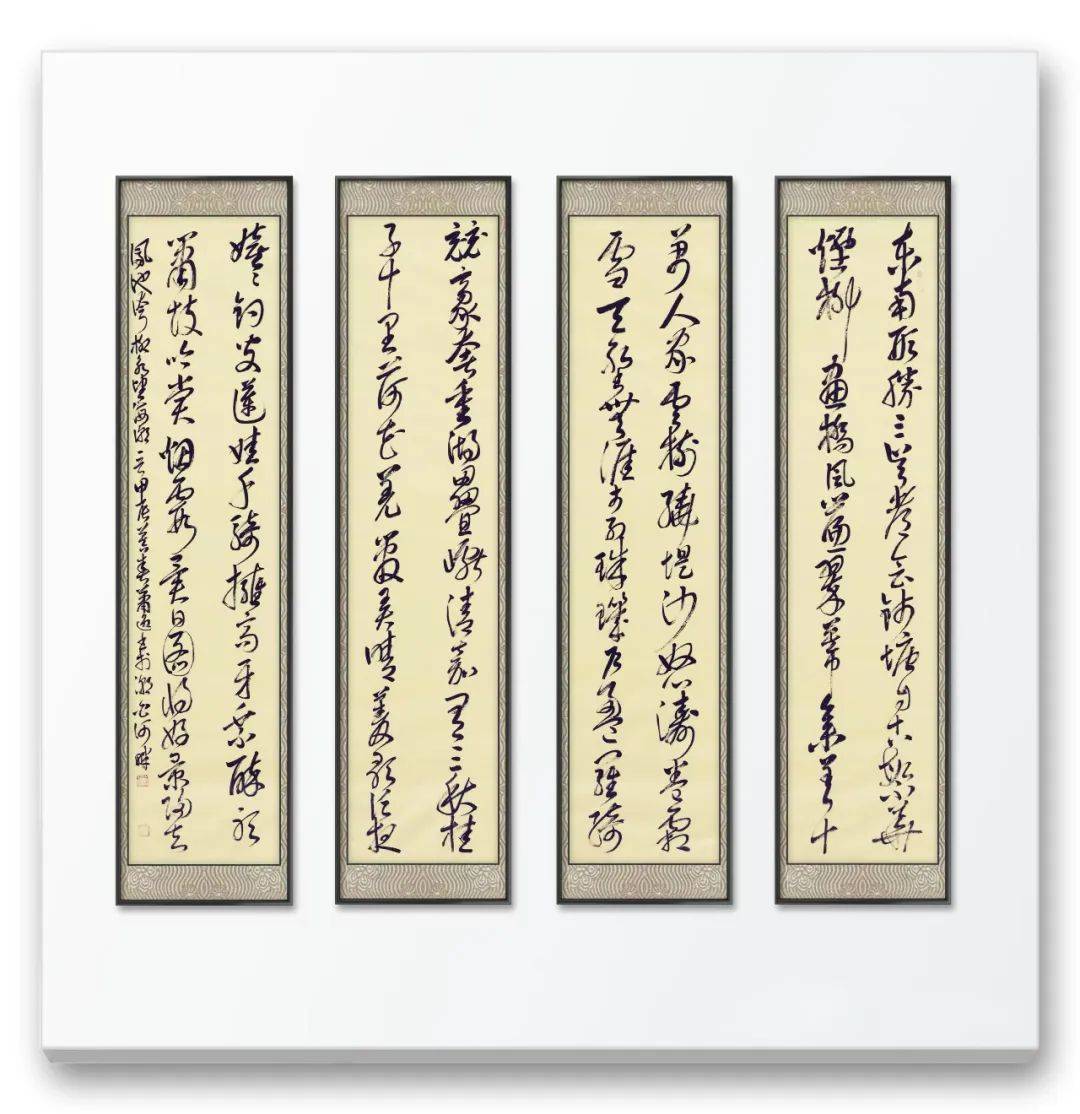 東南形勝三吳都會錢塘自古繁華
煙柳畫橋風簾翠幕參差十
萬人家雲樹繞堤沙怒濤卷霜
雪天塹無涯市列珠璣戶盈羅綺
競豪奢重湖疊巘清嘉有三秋桂
子十里荷花羌管弄晴菱歌泛夜
嬉〻釣叟蓮娃千騎擁高牙乘醉聽
簫鼓吟賞烟霞異日圖將好景歸去
鳳池誇柳永望海潮甲辰暮春蕭書於河畔